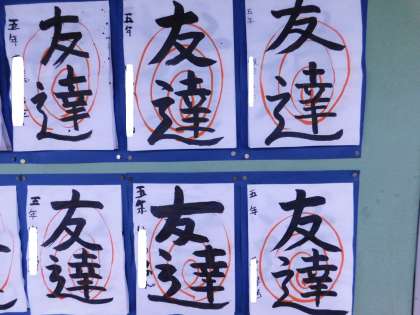 五年
友達
五年
友達
五年
友達
五年
友達
五年
友達
五年
友達